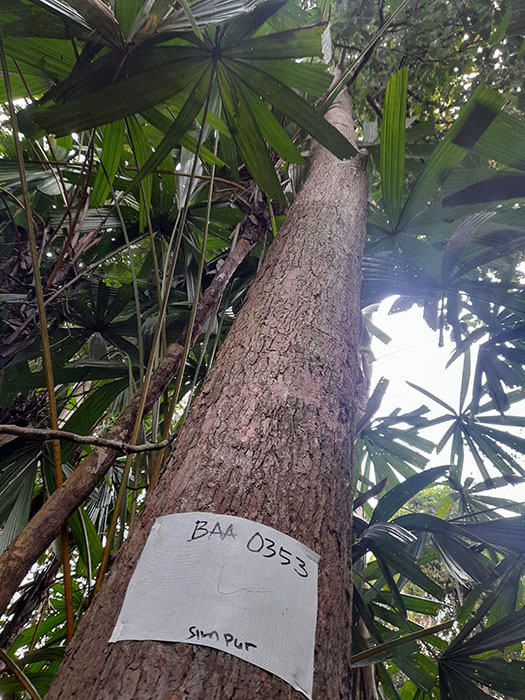 BAA 0353
simpur